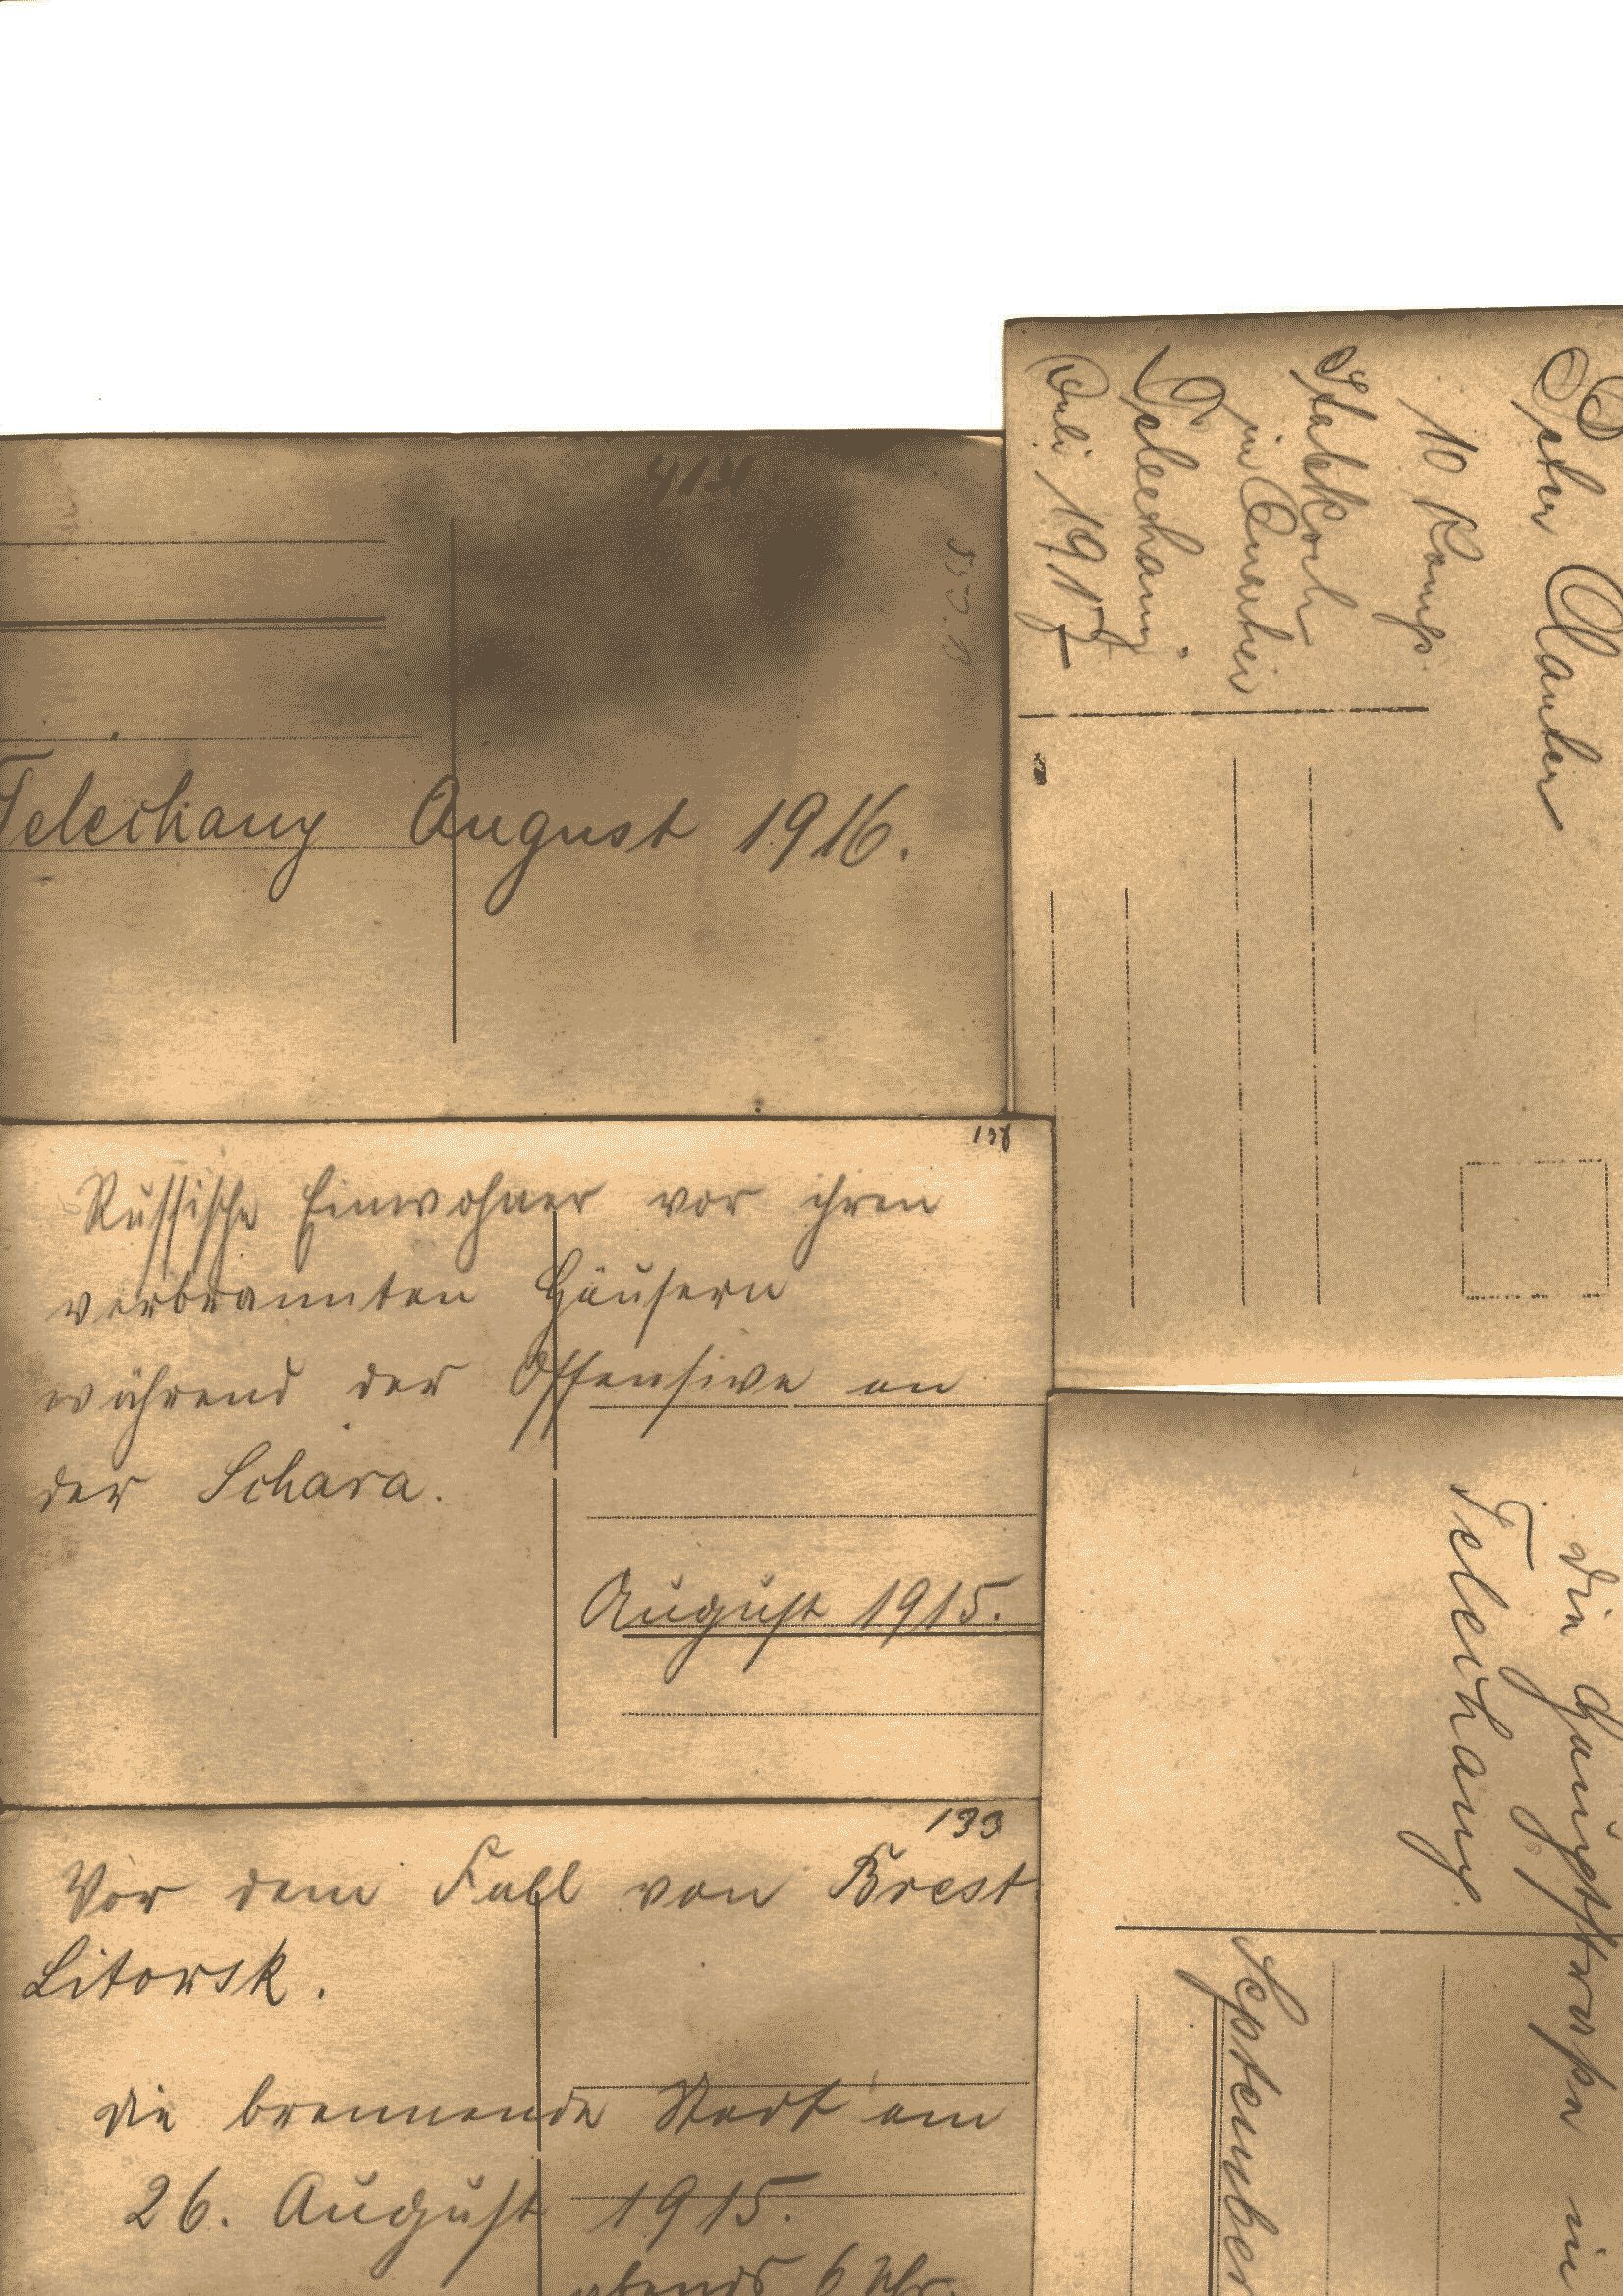 Telechany August 1916.
138
Russische Einwohner vor ihren
verbrannten Häusern
während der Offensive an
der Schara.
August 1915.
133
Vor dem Fall von Brest
Litowsk.
die brennende Stadt am
26. August 1915.
abends 6 Uhr.
Peter
10 Komp.
in Quartier
Telechany.
Juli 1917
die Hauptstraße in
Telechany.
September